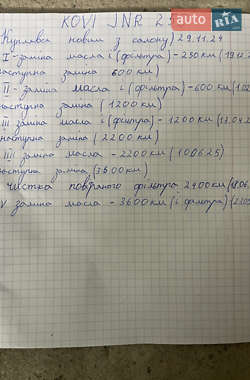 KOVI JNR 25
auto RIA
Купляв новим з салону) 29.11.24
I - заміна масла і (фільтра) - 250 км (19.12
наступна заміна 600 км)
II - заміна масла і (фільтра) - 600 км (1.02
наступна заміна (1200 км)
III заміна масла і (фільтра) - 1200 км (13.04.2
наступна заміна (2200 км)
IIII заміна масла - 2200 км (10.06.25)
наступна заміна (3600 км)
чистка повітряного фільтра 2400 км (18.06.
V заміна масла - 3600 км (і фільтра)